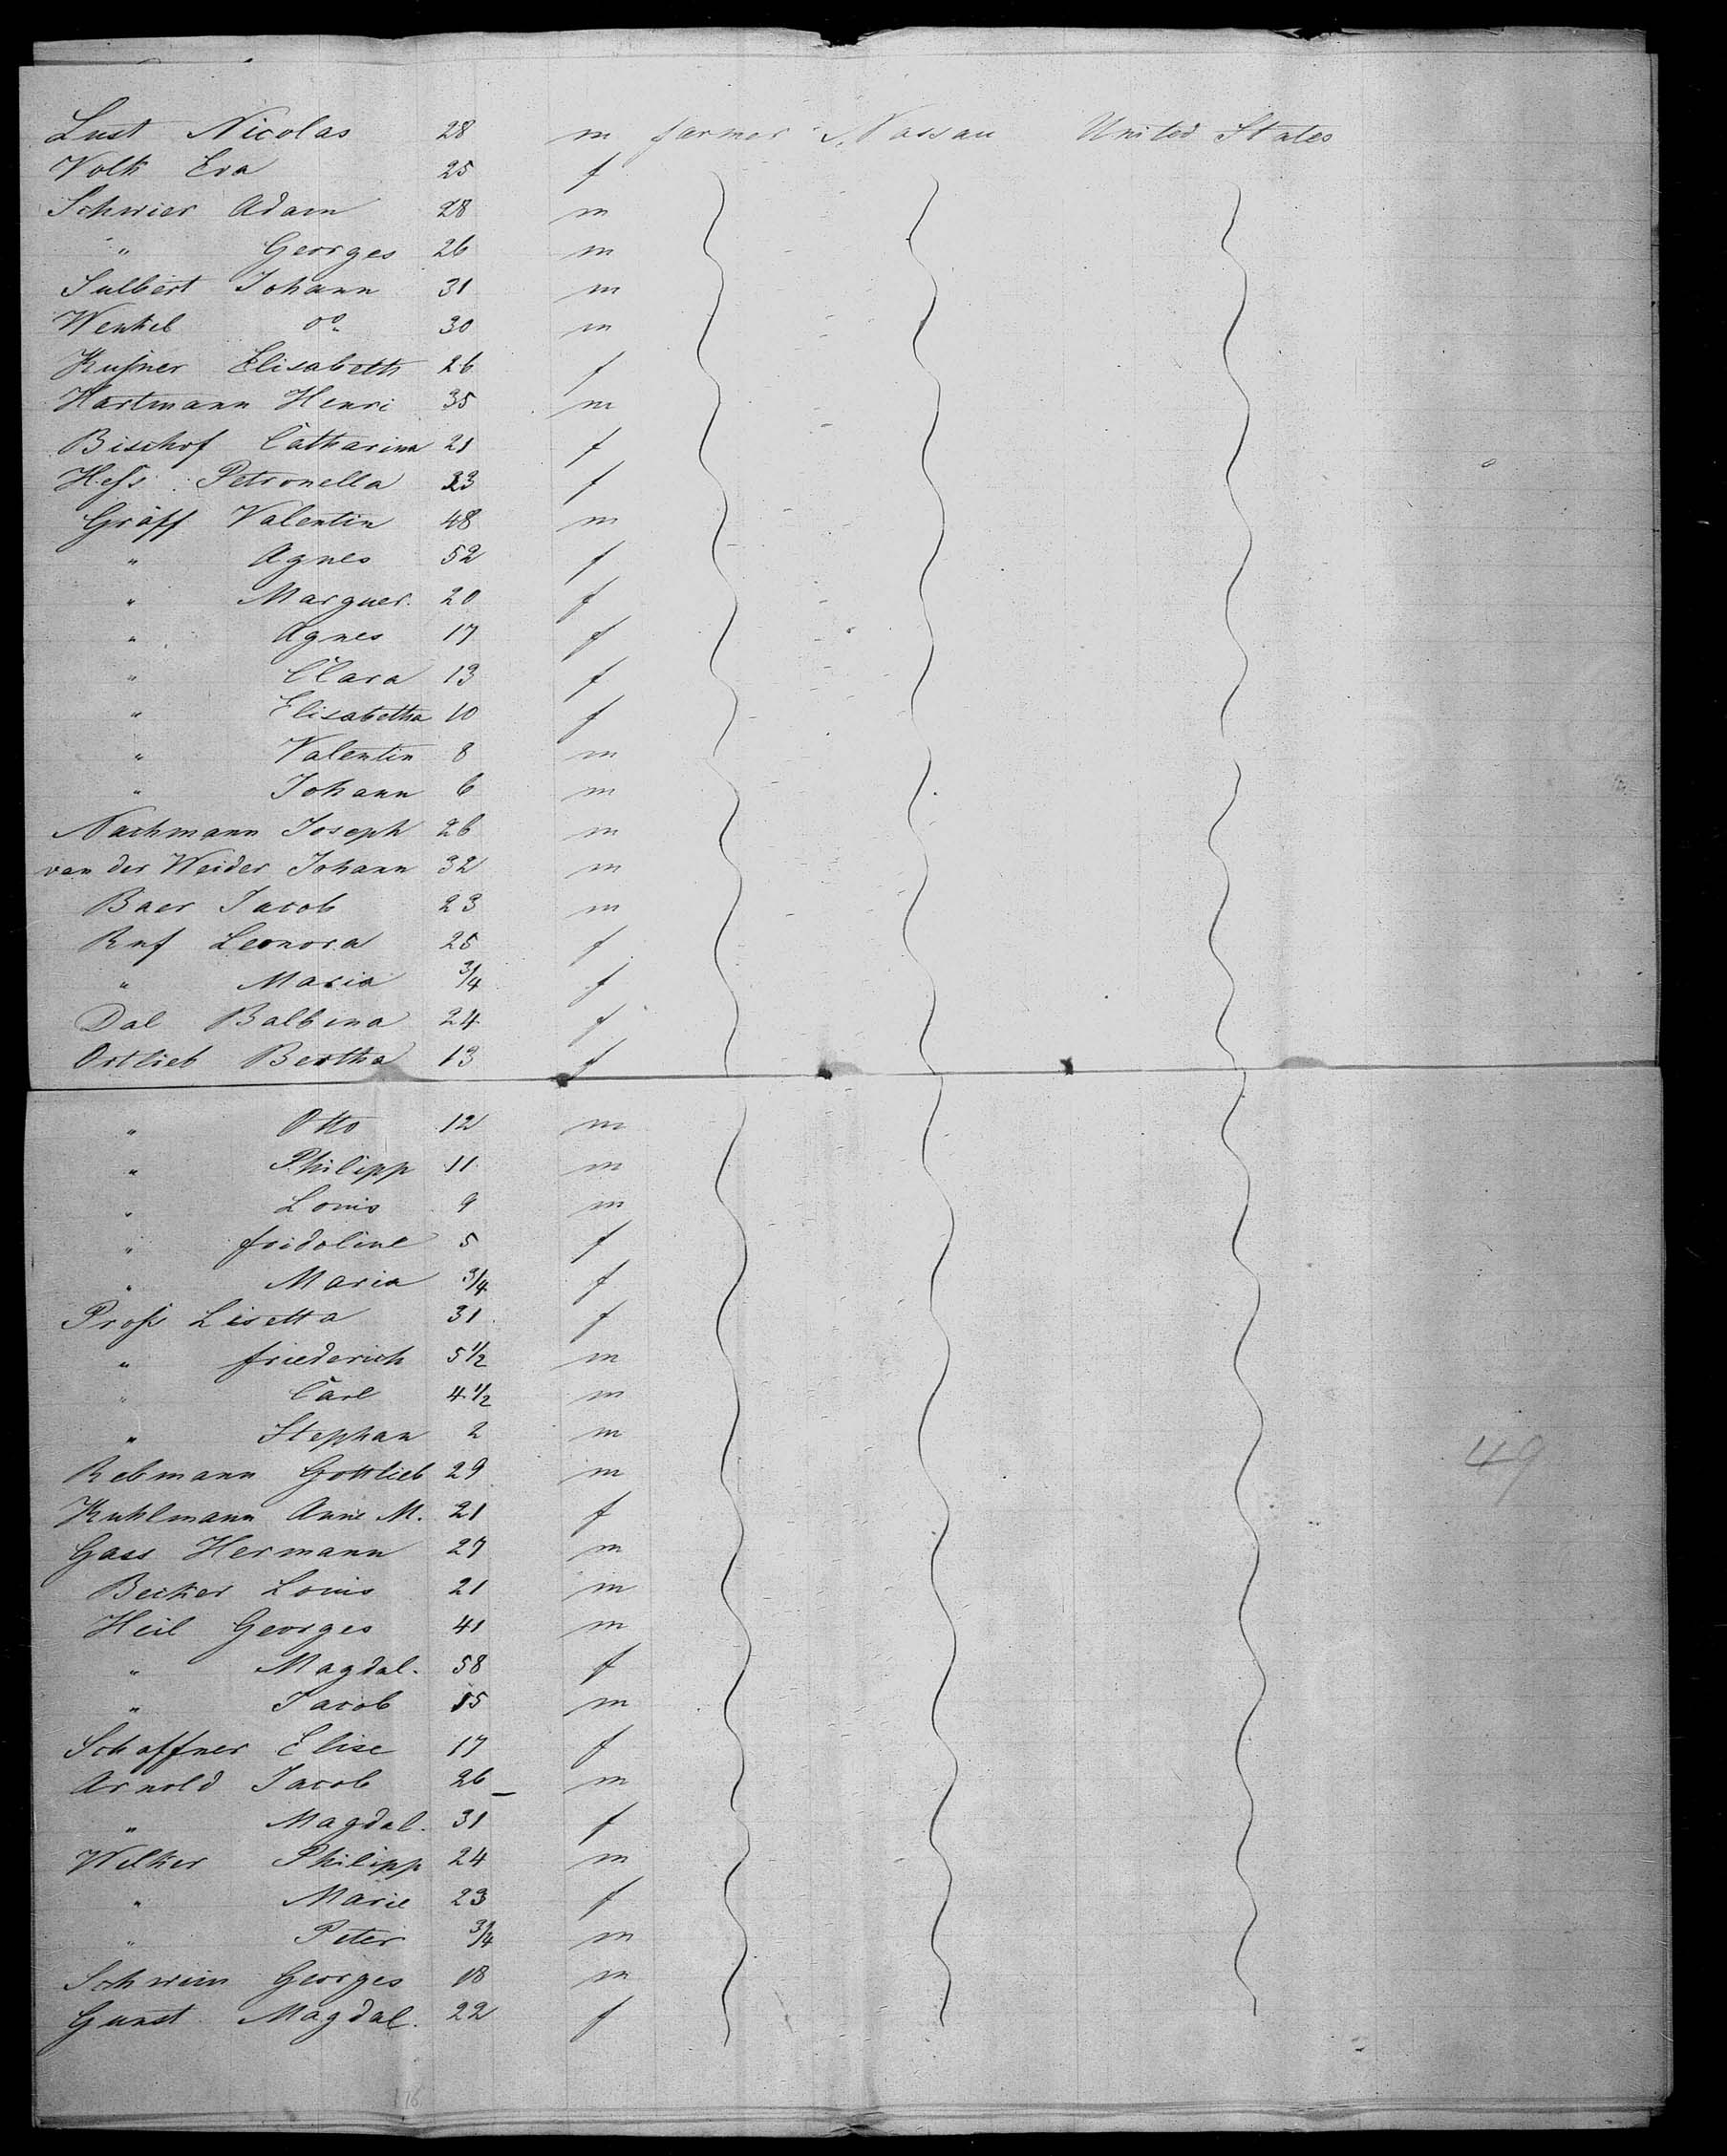 Lust Nicolas 28 m farmer Nassau United States
Volk Eva 25 f
Schwier Adam 28 m
" Georges 26 m
Sulbert Johann 31 m
Wenkel do 30 m
Kufner Elisabeth 26 f
Hartmann Henri 35 m
Bischof Catharina 21 f
Heſs Petronella 33 f
Gräff Valentin 48 m
" Agnes 52 f
" Marguer. 20 f
" Agnes 17 f
" Clara 13 f
" Elisabetha 10 f
" Valentin 8 m
" Johann 6 m
Nachmann Joseph 26 m
van der Weider Johann 32 m
Baer Jacob 23 m
Ruf Leonora 25 f
" Maria 3/4 f
Dal Balbina 24 f
Ortlieb Bertha 13 f
" Otto 12 m
" Philipp 11 m
" Louis 9 m
" fridoline 5 f
" Maria 3/4 f
Proſs Lisetta 31 f
" friederich 5 1/2 m
" Carl 4 1/2 m
" Stephan 2 m
Rebmann Gottlieb 29 m
49
Kuhlmann Anne M. 21 f
Gass Hermann 27 m
Becker Louis 21 m
Heil Georges 41 m
" Magdal. 58 f
" Jacob 15 m
Schaffner Elise 17 f
Arnold Jacob 26 m
" Magdal. 31 f
Welker Philipp 24 m
" Marie 23 f
" Peter 3/4 m
Schwein Georges 18 m
Gunst Magdal. 22 f